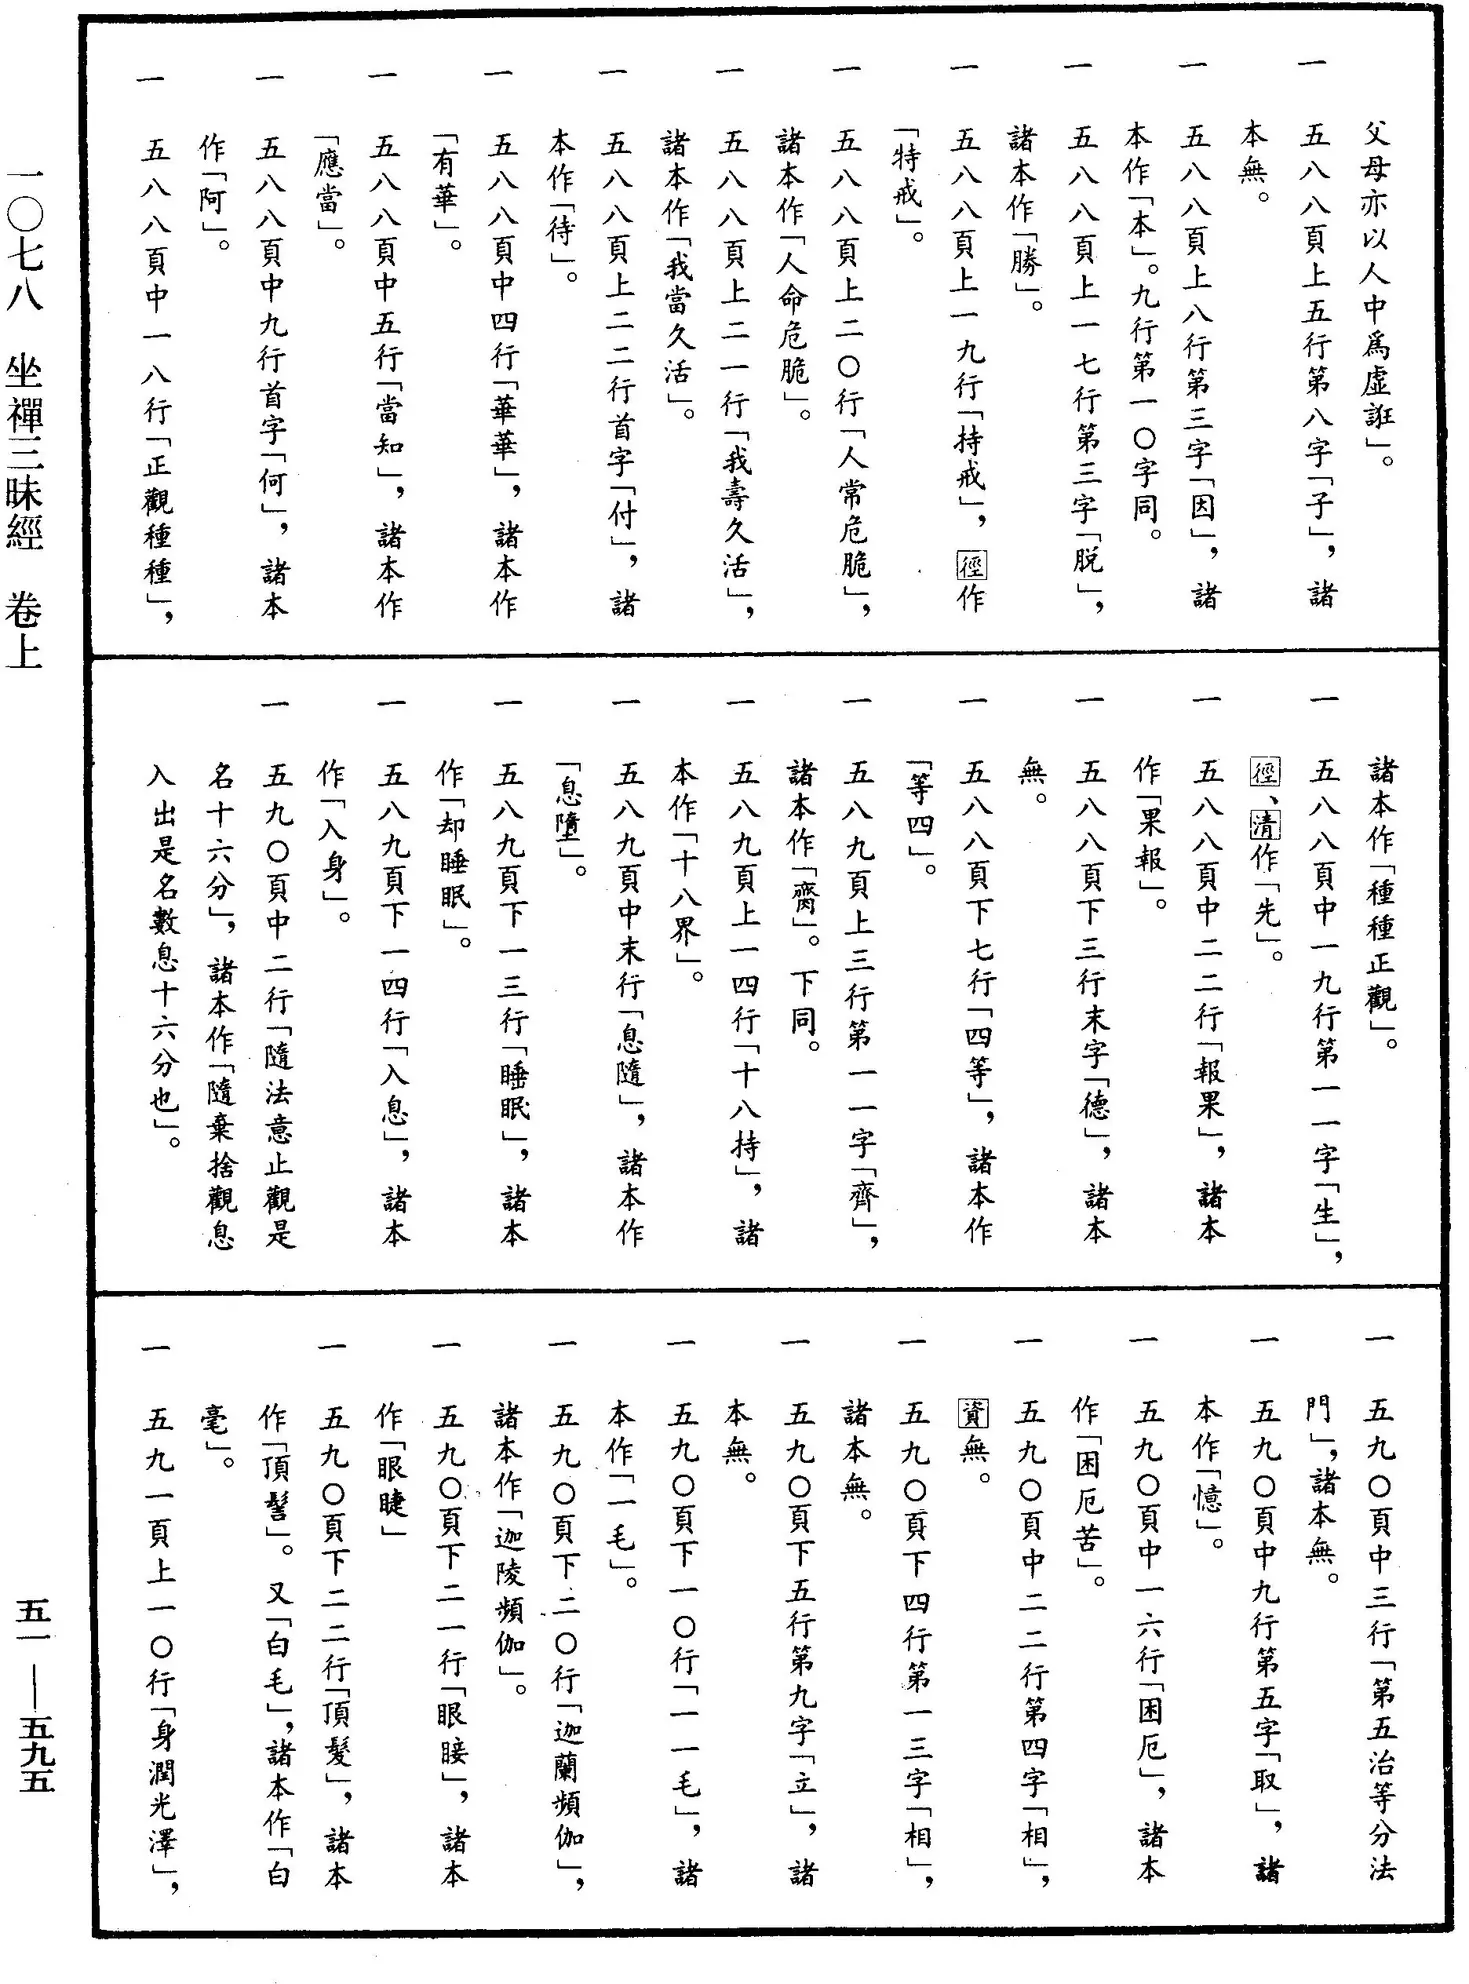 父母亦以人中爲虛誑」。
一　五八八頁上五行第八字「子」，諸
本無。
一　五八八頁上八行第三字「因」，諸
本作「本」。九行第一〇字同。
一　五八八頁上一七行第三字「脱」，
諸本作「勝」。
一　五八八頁上一九行「持戒」，徑作
「特戒」。
一　五八八頁上二〇行「人常危脆」，
諸本作「人命危脆」。
一　五八八頁上二一行「我壽久活」，
諸本作「我當久活」。
一　五八八頁上二二行首字「付」，諸
本作「待」。
一　五八八頁中四行「華華」，諸本作
「有華」。
一　五八八頁中五行「當知」，諸本作
「應當」。
一　五八八頁中九行首字「何」，諸本
作「阿」。
一　五八八頁中一八行「正觀種種」，
諸本作「種種正觀」。
一　五八八頁中一九行第一一字「生」，
徑、清作「先」。
一　五八八頁中二二行「報果」，諸本
作「果報」。
一　五八八頁下三行末字「德」，諸本
無。
一　五八八頁下七行「四等」，諸本作
「等四」。
一　五八九頁上三行第一一字「齊」，
諸本作「臍」。下同。
一　五八九頁上一四行「十八持」，諸
本作「十八界」。
一　五八九頁中末行「息隨」，諸本作
「息墮」。
一　五八九頁下一三行「睡眠」，諸本
作「却睡眠」。
一　五八九頁下一四行「入息」，諸本
作「入身」。
一　五九〇頁中二行「隨法意止觀是
名十六分」，諸本作「隨棄捨觀息
入出是名數息十六分也」。
一　五九〇頁中三行「第五治等分法
門」，諸本無。
一　五九〇頁中九行第五字「取」，諸
本作「憶」。
一　五九〇頁中一六行「困厄」，諸本
作「困厄苦」。
一　五九〇頁中二二行第四字「相」，
資無。
一　五九〇頁下四行第一三字「相」，
諸本無。
一　五九〇頁下五行第九字「立」，諸
本無。
一　五九〇頁下一〇行「一一毛」，諸
本作「一毛」。
一　五九〇頁下二〇行「迦蘭頻伽」，
諸本作「迦陵頻伽」。
一　五九〇頁下二一行「眼睫」，諸本
作「眼睫」
一　五九〇頁下二二行「頂髮」，諸本
作「頂髻」。又「白毛」，諸本作「白
毫」。
一　五九一頁上一〇行「身潤光澤」，
一〇七八　坐禪三昧經　卷上
五一——五九五